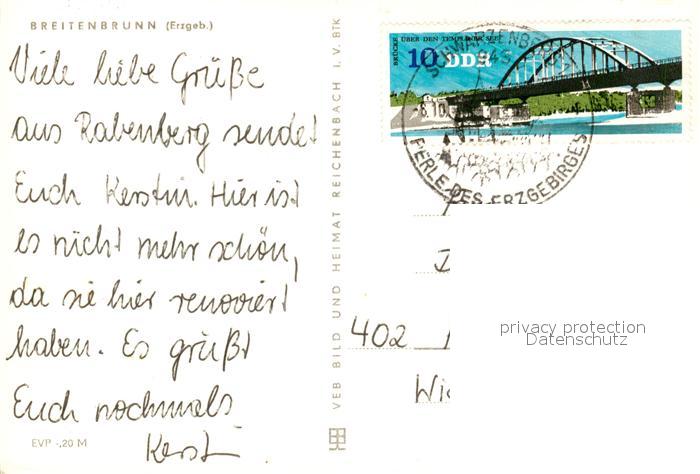 BREITENBRUNN (Erzgeb.)
Viele liebe Grüße
aus Rabenberg sendet
Euch Kerstin. Hier ist
es nicht mehr schön,
da sie hier renoviert
haben. Es grüßt
Euch nochmals
Kerst
EVP -,20 M
VEB BILD UND HEIMAT REICHENBACH I. V. BTK
BRÜCKE ÜBER DEN TEMPLINER SEE
10 DDR
SCHWARZENBERG
945
PERLE DES ERZGEBIRGES
402
privacy protection
Datenschutz